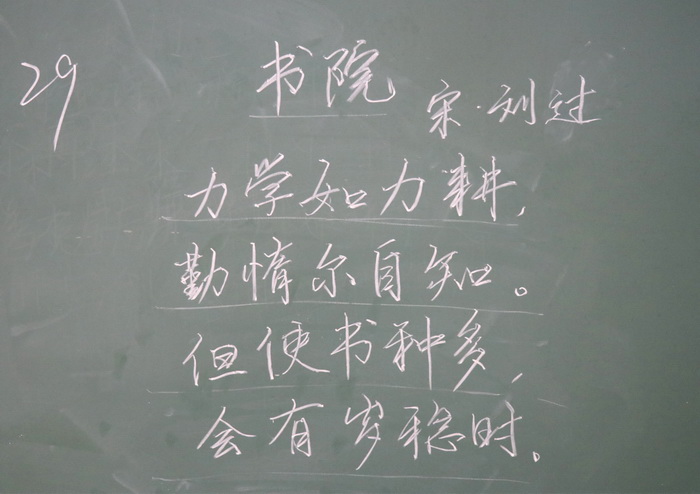 29
书院
宋·刘过
力学如力耕，
勤惰尔自知。
但使书种多，
会有岁稔时。